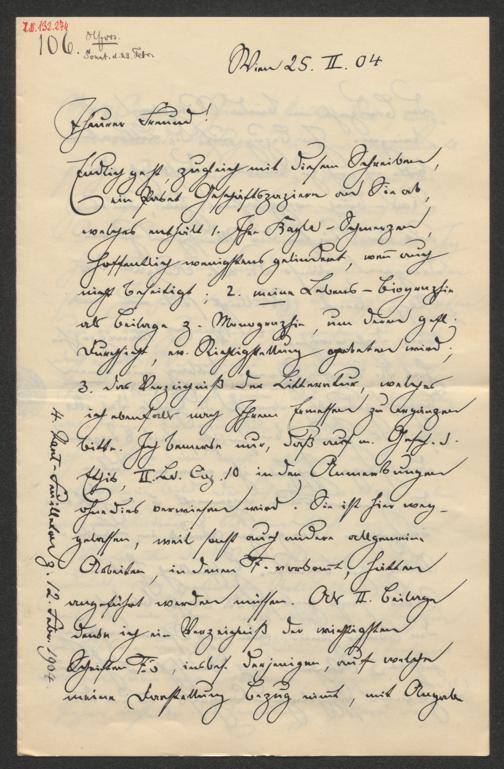 I.N. 132.274
106.
Wien 25. II. 04
Theurer Freund!
Endlich geht, zugleich mit diesem Schreiben,
ein Paket Geschäftspapiere an Sie ab,
welches enthält 1. Ihre Kayle-Schmerzen,
hoffentlich wenigstens gelindert, wenn auch
nicht beseitigt; 2. meine Lebens-Biographie
als Beilage z. Monographie, um deren gefl.
Durchsicht, ev. Richtigstellung gebeten wird;
3. das Verzeichniß der Litteratur, welches
ich ebenfalls nach Ihrem Ermessen zu ergänzen
bitte. Ich bemerke nur, daß auf m. Gesch. d.
Ethik, II. Bd. Cap. 10 in den Anmerkungen
ohnedies verwiesen wird. Sie ist hier weg-
gelassen, weil sonst auch andere allgemeine
Arbeiten, in denen F. vorkommt, hätten
angeführt werden müssen. Als II. Beilage
denke ich ein Verzeichniß der wichtigsten
Schriften F's, insbes. derjenigen, auf welche
meine Darstellung Bezug nimmt, mit Angabe
4. Kant-Feuilleton z. 12. Febr. 1904